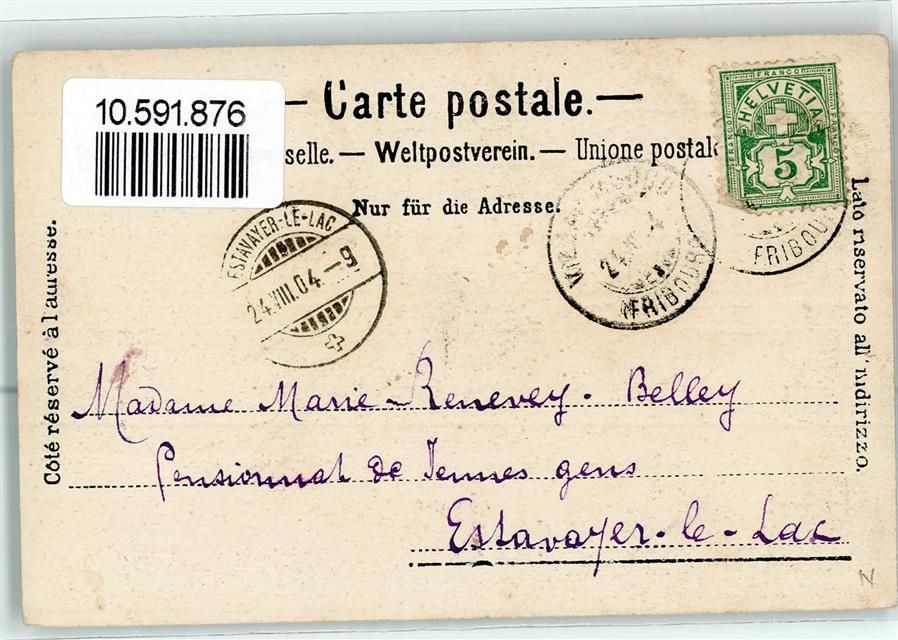 10.591.876
— Carte postale. —
selle. — Weltpostverein. — Unione postale
Nur für die Adresse.
FRANCO
FRANCO
FRANCO
HELVETIA
5
ESTAVAYER-LE-LAC
24.VIII.04.-9
24
4
(FRIBOURG
FRIBOU
Côté réservé à l'adresse.
Lato riservato all'indirizzo.
Madame Marie-Renevey-Belley
Pensionnat de Jeunes gens
Estavayer-le-Lac
N